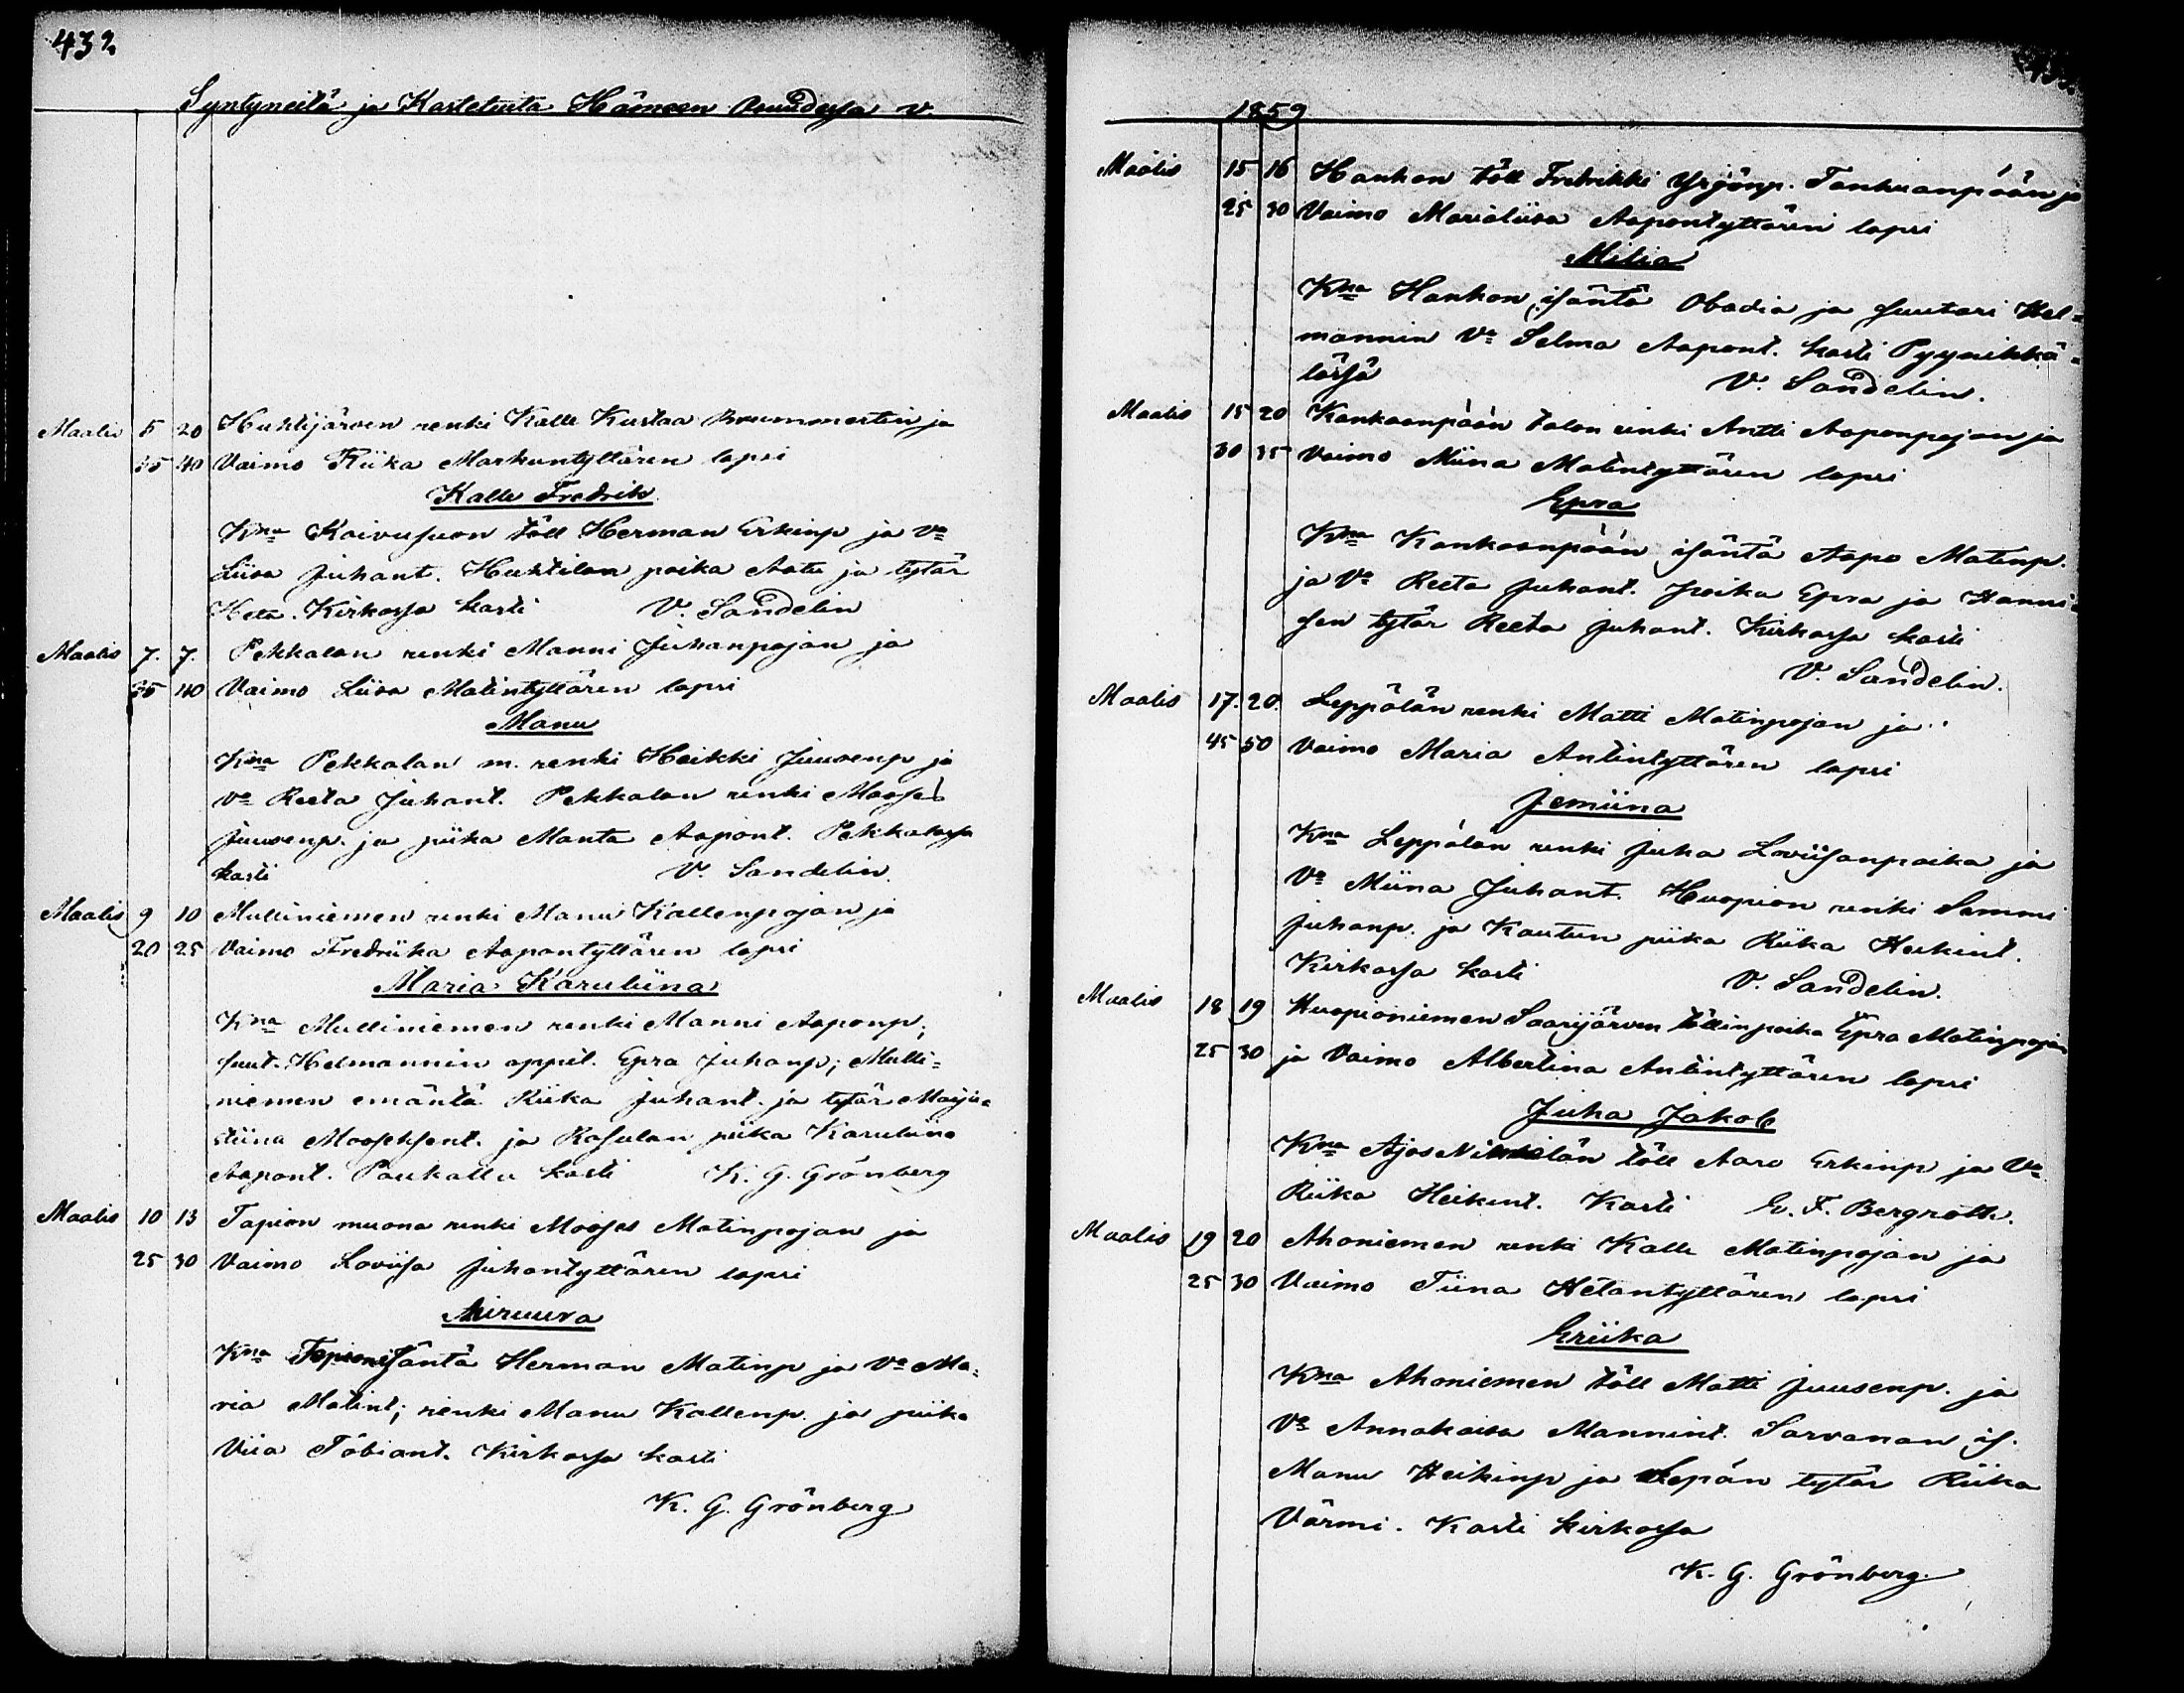 432
Syntyneitä ja Kastetuita Hämeen Osuudessa v.
Maalis 5 20 Huhtijärven renki Kalle Kustaa Brummertin ja
35 40 Vaimo Riika Markuntyttären lapsi
Kalle Fredrik
Kna Koivusuon töll Herman Erkinp ja Va
Liisa Juhant. Huhtilan poika Aatu ja tytär
Heta. Kirkossa kasti V. Sandelin
Maalis 7. 7. Pekkalan renki Manni Juhanpojan ja
35 40 Vaimo Liisa Matintyttären lapsi
Manu
Kna Pekkalan m. renki Heikki Juusenp ja
Va Reeta Juhant. Pekkalan renki Mooses
Juusenp. ja piika Manta Aapont. Pekkalassa
kasti V. Sandelin
Maalis 9 10 Mulliniemen renki Manu Kallenpojan ja
20 25 Vaimo Fredriika Aapontyttären lapsi
Maria Karuliina
Kna Mulliniemen renki Manni Aaponp;
suut. Helmannin oppil. Epra Juhanp; Mulli=
niemen emäntä Riika Juhant. ja tytär Maija=
stiina Mooseksent. ja Rasulan piika Karuliina
Aapont. Paukalla kasti K. G. Grönberg
Maalis 10 13 Tapion muona renki Mooses Matinpojan ja
25 30 Vaimo Loviisa Juhantyttären lapsi
Miruuva
Kna Tapion isäntä Herman Matinp ja Va Ma=
ria Matint; renki Manu Kallenp. ja piika
Viia Tobiant. Kirkossa kasti
K. G. Grönberg
1859
Maalis 15 16 Hankon töll Fredrikki Yrjönp. Tanhuanpään ja
25 30 Vaimo Marialiisa Aapontyttären lapsi
Milia
Kna Hankon isäntä Obadia ja suutari Hel=
mannin Va Selma Aapont. kasti Pyynikkä=
lässä V. Sandelin.
Maalis 15 20 Kankaanpään talon renki Antti Aaponpojan ja
30 35 Vaimo Miina Matintyttären lapsi
Epra
Kna Kankaanpään isäntä Aapo Matinp.
ja Va Reeta Juhant. poika Epra ja Hanni=
sen tytär Reeta Juhant. Kirkossa kasti
V. Sandelin.
Maalis 17. 20. Leppälän renki Matti Matinpojan ja
45 50 Vaimo Maria Antintyttären lapsi
Jemiina
Kna Leppälän renki Juha Loviisanpoika ja
Va Miina Juhant. Huopion renki Sammi
Juhanp. ja Kautun piika Riika Heikint.
Kirkossa kasti V. Sandelin.
Maalis 18 19 Huopioniemen Saarijärven töllinpoika Epra Matinpojan
25 30 ja Vaimo Albertina Antintyttären lapsi
Juha Jakob
Kna Ajos Nikkilän töll Aaro Erkinp ja Va
Riika Heikint. Kasti E. F. Bergroth.
Maalis 19 20 Ahoniemen renki Kalle Matinpojan ja
25 30 Vaimo Tiina Hetantyttären lapsi
Eriika
Kna Ahoniemen töll Matti Juusenp. ja
Va Annakaisa Mannint. Sarvanan is.
Manu Heikinp ja Sepän tytär Riika
Värmi. Kasti kirkossa
K. G. Grönberg.